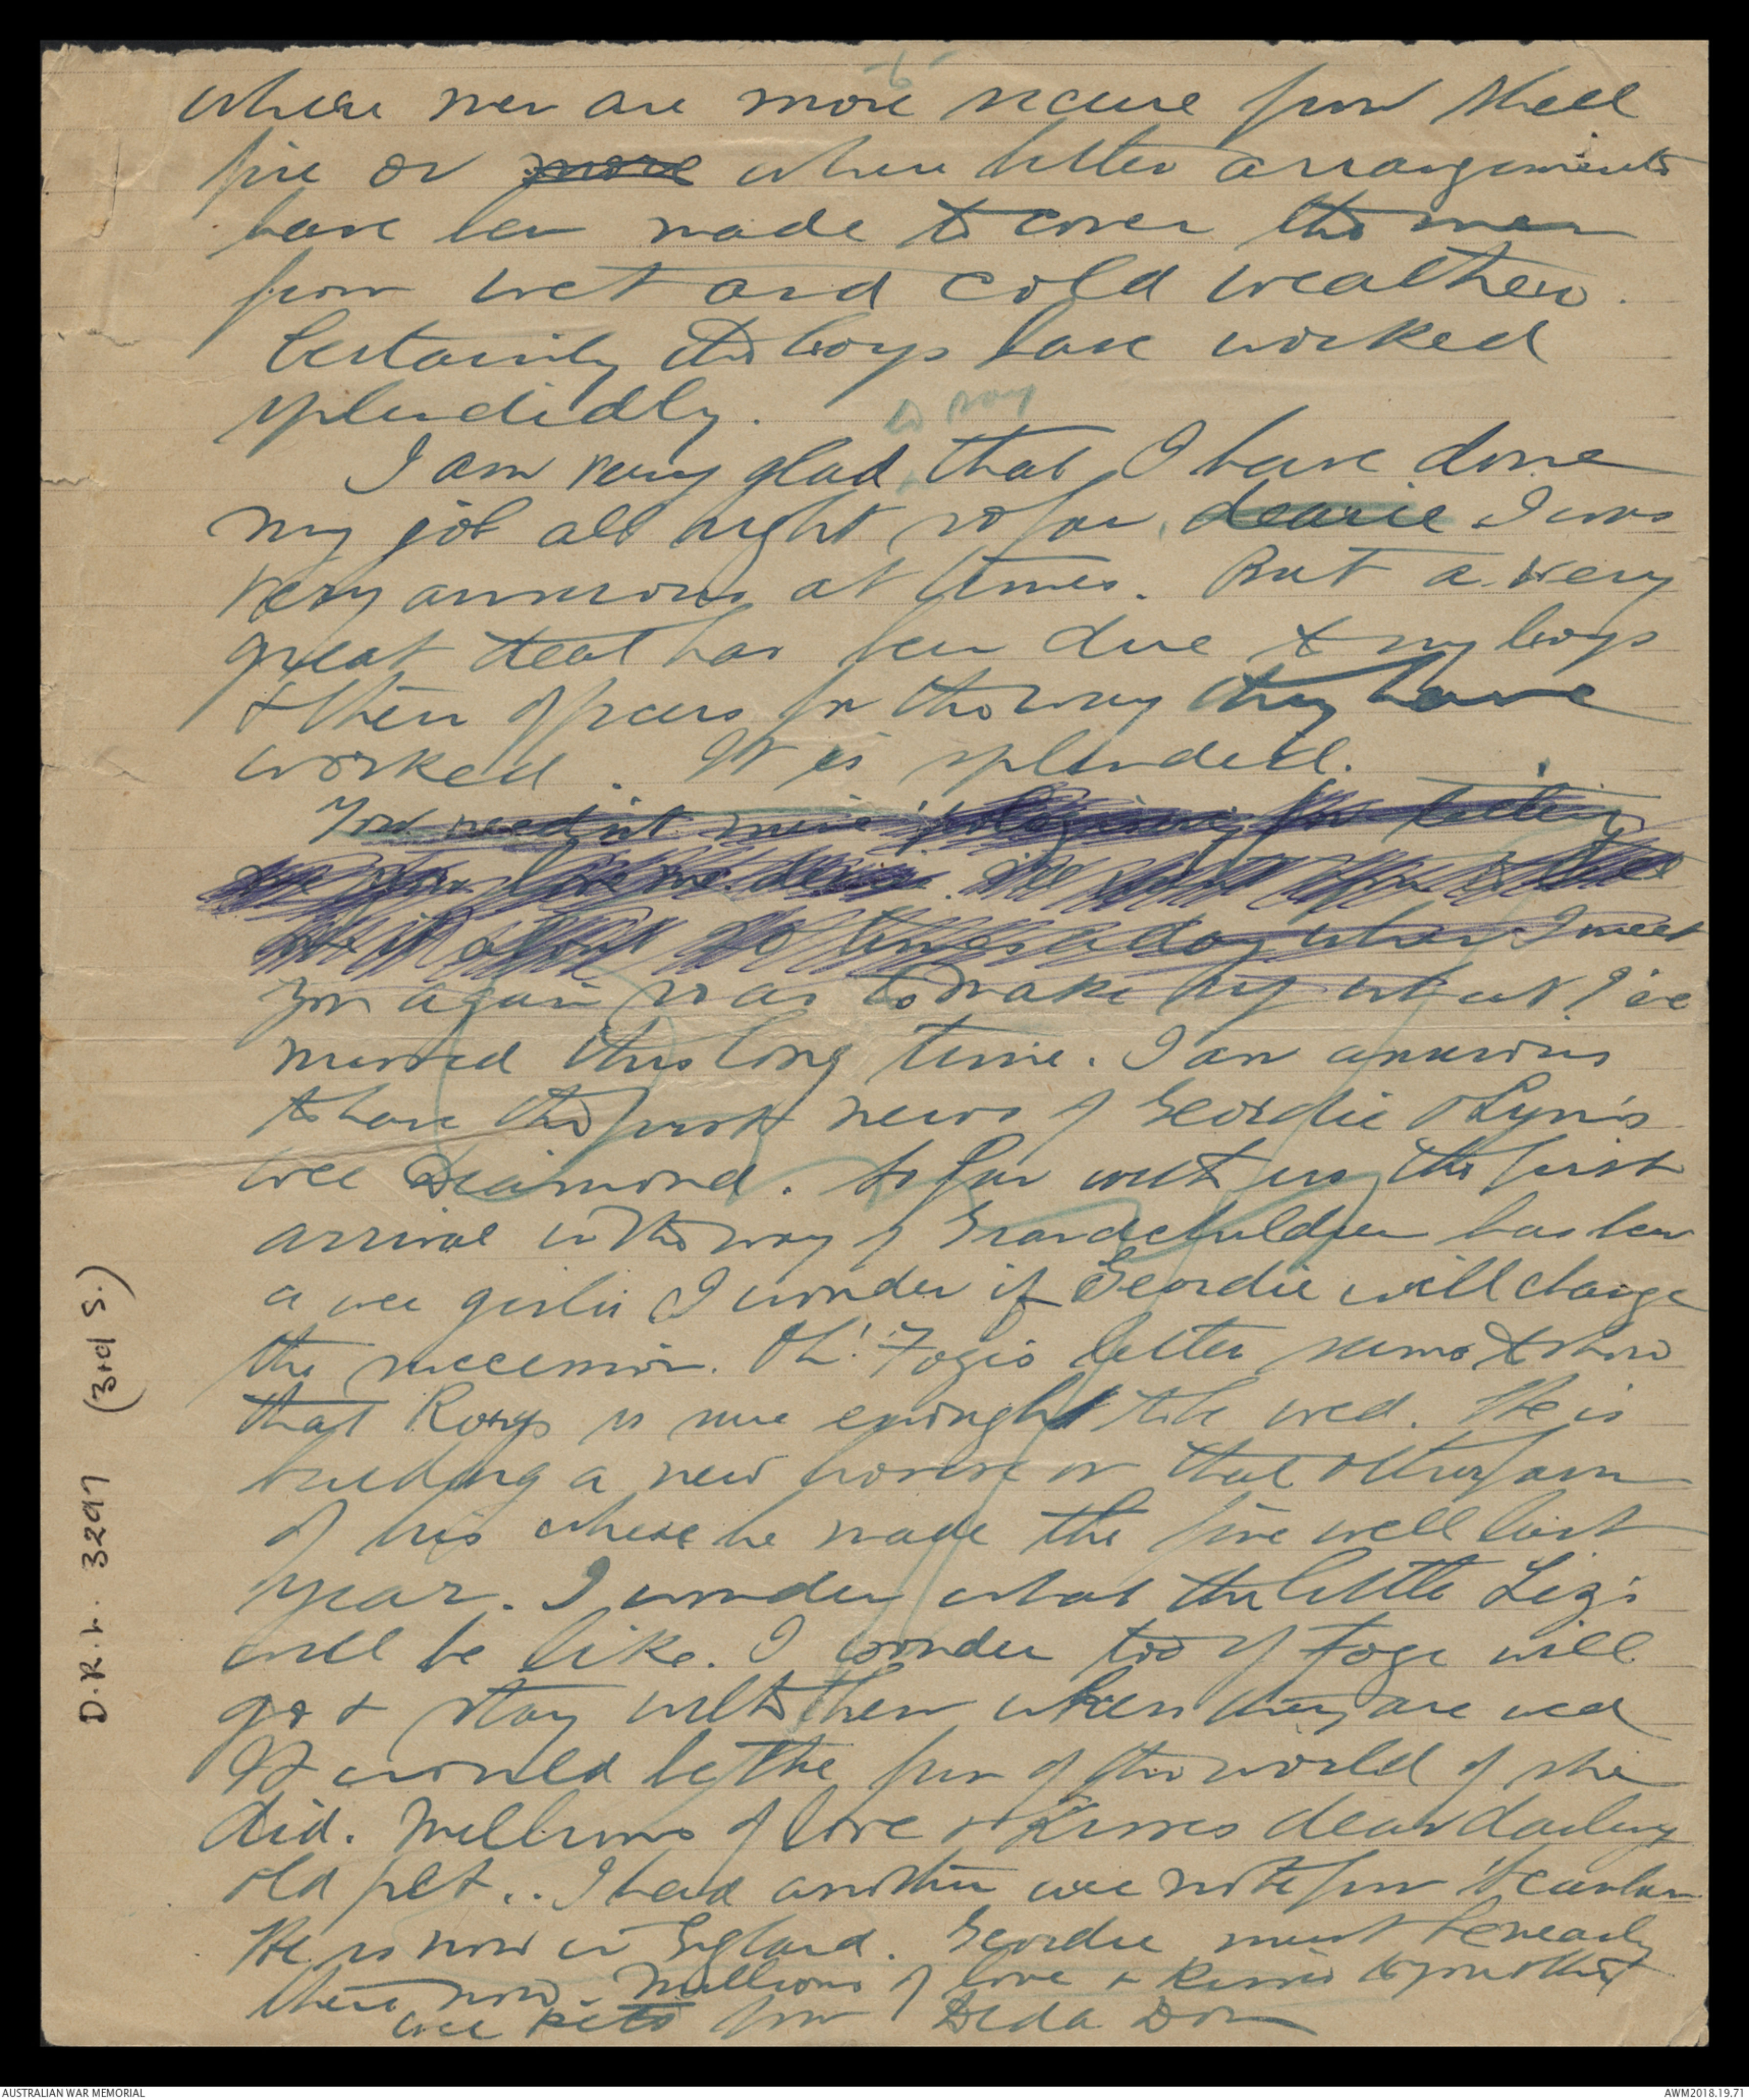 -6-
where men are more secure from shell
fire or more where better arrangements
have been made to cover the men
from wet and cold weather.
Certainly the boys have worked
splendidly.
to say
I am very glad that I have done
my job all right so far, dearie I was
very anxious at times. But a very
great deal has been due to my boys
& their officers for the way they have
worked. It is splendid.
You needn't mind apologising for telling
me you love me dearie. I'll want you to tell
me it about 20 times a day when I meet
you again so as to make up what I've
missed this long time. I am anxious
to have the first news of Geordie & Lyn's
wee Diamond. So far with us the first
arrival in the way of Grandchildren has been
a wee girlie I wonder if Geordie will change
the succession. Oh! Foge's letter seems to show
that Roy is sure enough to be wed. He is
building a new house on that other farm
of his where he made the fire well last
year. I wonder what the little Liz's
will be like. I wonder too if Foge will
go & stay with them when they are wed
It would be the fun of the world if she
did. Millions of love & kisses dear darling
old pet.. I had another wee note from
He is now in England. Geordie must be nearly
there now. Millions of love & kisses to you & the
wee pets from Dida Don
D.R.L. 3297 (3rd S.)
AUSTRALIAN WAR MEMORIAL
AWM2018.19.71